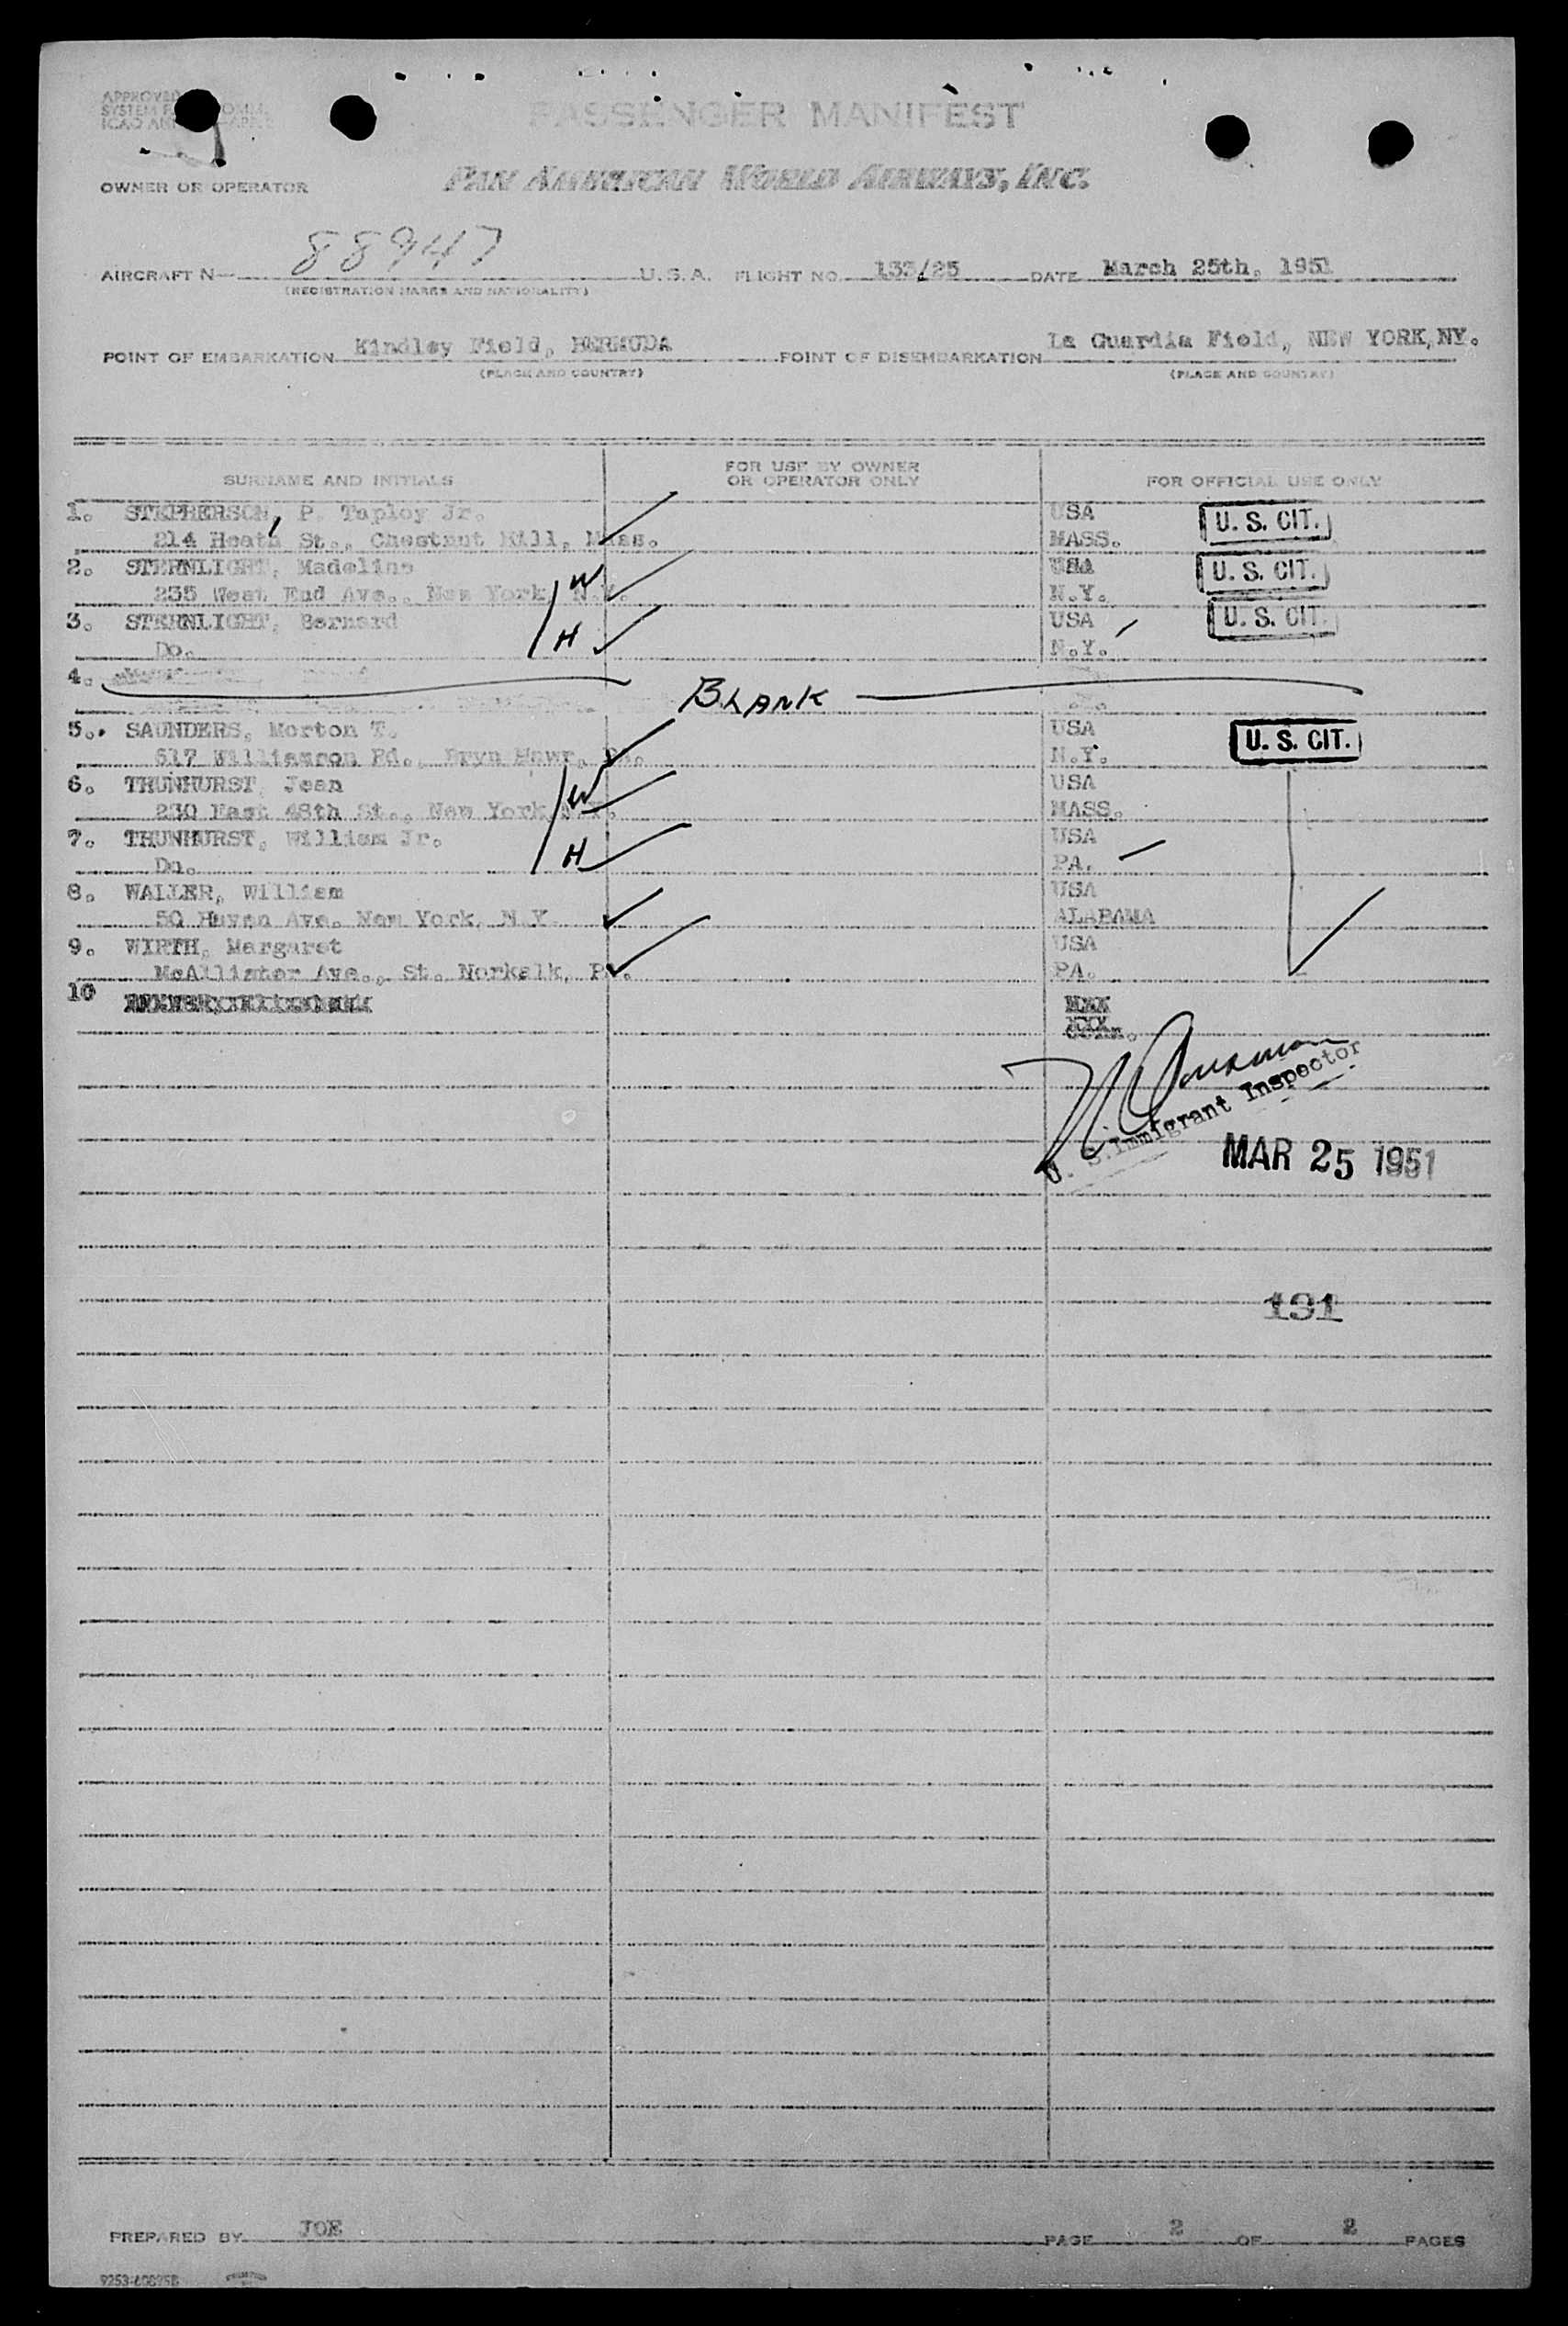 PASSENGER MANIFEST
OWNER OR OPERATOR PAN AMERICAN WORLD AIRWAYS, INC.
AIRCRAFT N— 88947 U.S.A. FLIGHT NO. 133/25 DATE March 25th, 1951
(REGISTRATION MARKS AND NATIONALITY)
POINT OF EMBARKATION Kindley Field, BERMUDA POINT OF DISEMBARKATION La Guardia Field, NEW YORK, NY.
(PLACE AND COUNTRY) (PLACE AND COUNTRY)
SURNAME AND INITIALS FOR USE BY OWNER OR OPERATOR ONLY FOR OFFICIAL USE ONLY
1. STEPHERSON, P. Tapley Jr. USA U. S. CIT.
214 Heath St., Chestnut Hill, Mass. MASS.
2. STERNLIGHT, Madeline USA U. S. CIT.
235 West End Ave., New York, N.Y. W N.Y.
3. STERNLIGHT, Bernard USA U. S. CIT.
Do. H N.Y.
4. BLANK
5. SAUNDERS, Morton T. USA U. S. CIT.
617 Williamson Rd., Bryn Mawr, Pa. N.Y.
6. THUNHURST, Jean W USA
230 East 48th St., New York, N.Y. MASS.
7. THUNHURST, William Jr. USA
Do. H PA.
8. WALLER, William USA
50 Haven Ave. New York, N.Y. ALABAMA
9. WIRTH, Margaret USA
McAllister Ave., St. PA.
10
U. S. Immigrant Inspector
MAR 25 1951
191
PREPARED BY JOE PAGE 2 OF 2 PAGES